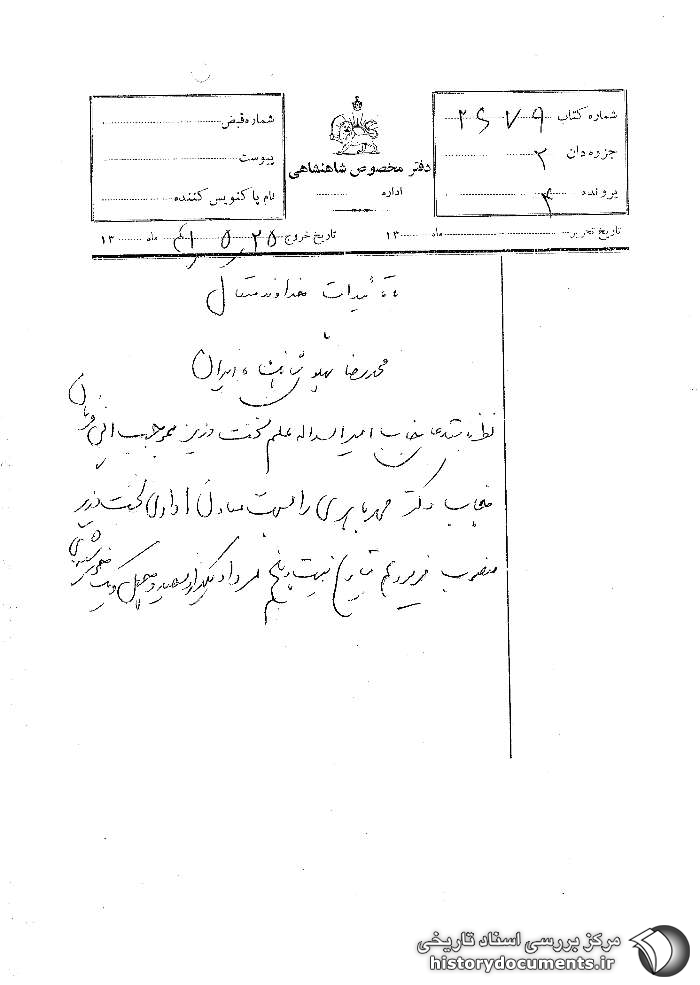 شماره کتاب ۲۶۷۹
جزوه‌دان ۲
پرونده ۴
دفتر مخصوص شاهنشاهی
اداره
شماره قبض
پیوست
نام پاکنویس کننده
تاریخ تحریر ماه ۱۳
تاریخ خروج ۲۵ ۵ ۴۱ ماه ۱۳
با تأییدات خداوند متعال
محمدرضا پهلوی شاهنشاه ایران
نظر باستدعای جناب امیر اسداله علم نخست وزیر بموجب این فرمان
جناب دکتر محمد باهری را بسمت معاون اداری نخست وزیر
منصوب فرمودیم بتاریخ بیست و پنجم مرداد یکهزار و سیصد و چهل و یک خورشیدی
مرکز بررسی اسناد تاریخی
historydocuments.ir